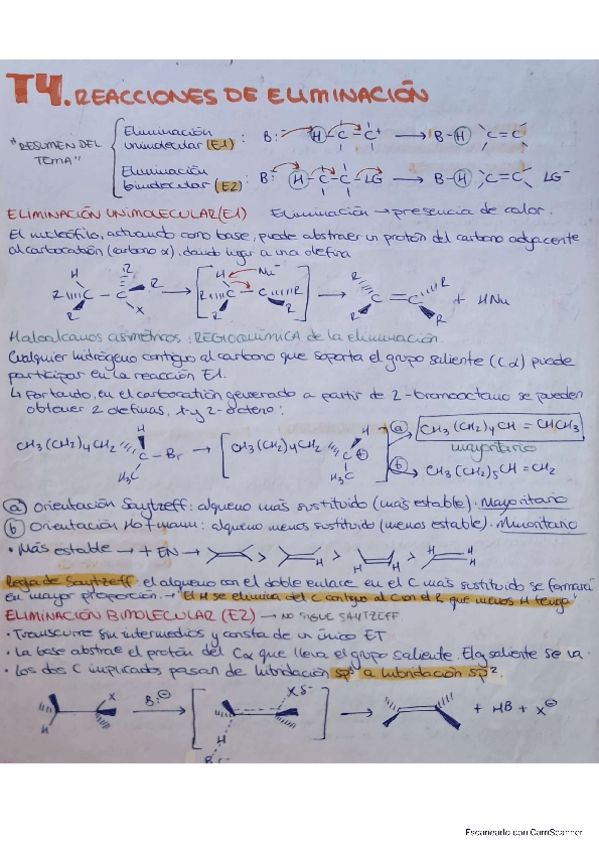 T4. REACCIONES DE ELIMINACIÓN
"RESUMEN DEL TEMA"
Eliminación unimolecular (E1) : B:⁻ H-C-C⁺ → B-H C=C
Eliminación bimolecular (E2) : B:⁻ H-C-C-LG → B-H C=C LG⁻
ELIMINACIÓN UNIMOLECULAR (E1) Eliminación → presencia de calor.
El nucleófilo, actuando como base, puede abstraer un protón del carbono adyacente
al carbocatión (carbono α), dando lugar a una olefina
H R R R C - C R R X → [ H Nu⁻ R R C - C R R ] → R R C = C R R + HNu
Haloalcanos asimétricos : REGIOQUÍMICA de la eliminación.
Cualquier hidrógeno contiguo al carbono que soporta el grupo saliente (Cα) puede
participar en la reacción E1.
↳ Por tanto, en el carbocatión generado a partir de 2-bromooctano se pueden
obtener 2 olefinas, 1 y 2-octeno :
CH₃(CH₂)₄CH₂ H C - Br H₃C → [ CH₃(CH₂)₄CH₂ H C ⊕ H₃C ] → ⓐ CH₃(CH₂)₄CH = CHCH₃
mayoritario
ⓑ → CH₃(CH₂)₅CH = CH₂
ⓐ Orientación Saytzeff : alqueno más sustituido (más estable). Mayoritario
ⓑ Orientación Hofmann : alqueno menos sustituido (menos estable). Minoritario
• Más estable → + EN → > > H H > H H H
Regla de Saytzeff el alqueno con el doble enlace en el C más sustituido se formará
en mayor proporción. → "El H se elimina del C contiguo al C con el R que menos H tenga"
ELIMINACIÓN BIMOLECULAR (E2) → NO SIGUE SAYTZEFF
• Transcurre sin intermedios y consta de un único ET
• La base abstrae el protón del Cα que lleva el grupo saliente. El g saliente se va.
• Los dos C implicados pasan de hibridación sp³ a hibridación sp².
X H B:⊖ → [ Xδ⁻ H B ] → + HB + X⊖
Escaneado con CamScanner